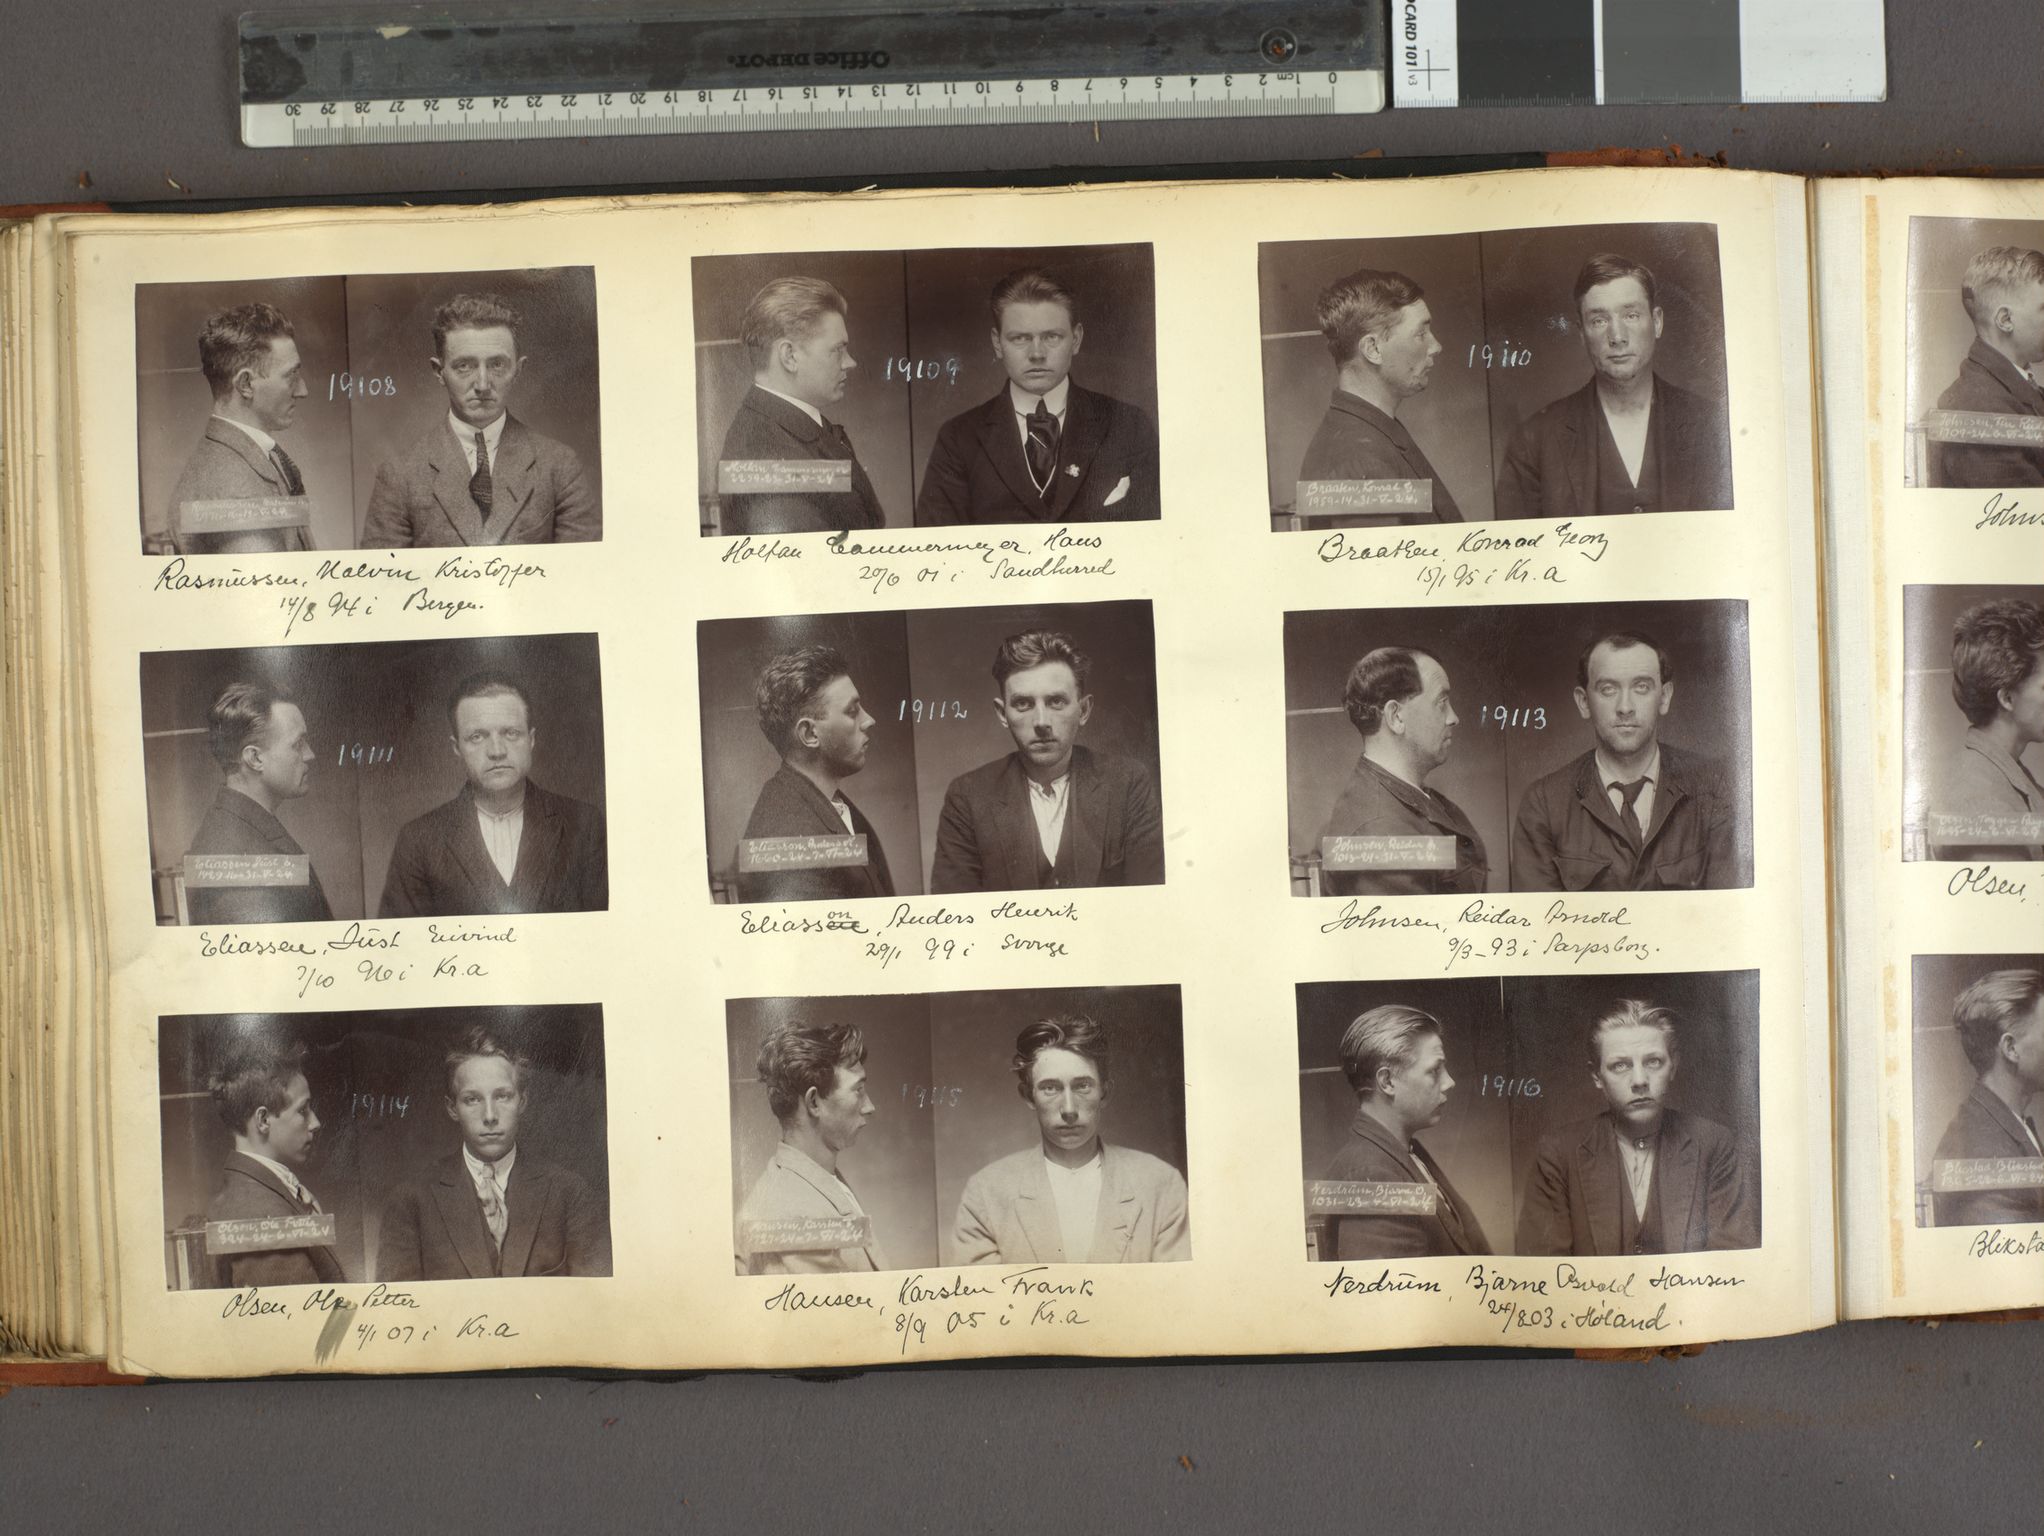 Office DEPOT.
0 1cm 2 3 4 5 6 7 8 9 10 11 12 13 14 15 16 17 18 19 20 21 22 23 24 25 26 27 28 29 30
CARD 101 v3
19108
Rasmussen, Malvin Kristoffer
14/8 94 i Bergen.
19109
2259-23-31-V-24
Holtan Cammermeyer, Hans
20/6 01 i Sandherred
19110
Braaten, Konrad G.
1959-14-31-V-24.
Braathen, Konrad Georg
15/1 95 i Kr.a
19111
Eliassen Just E.
1429-16-31-V-24
Eliassen, Just Eivind
7/10 96 i Kr.a
19112
Eliasson, Anders H.
1660-24-7-VI-24
Eliassen on, Anders Henrik
29/1 99 i Sverige
19113
Johnsen, Reidar A.
1013-21-31-V-24.
Johnsen, Reidar Arnold
9/3-93 i Sarpsborg.
19114
Olsen, Ole Petter
394-24-6-VI-24
Olsen, Ole Petter
4/1 07 i Kr.a
19115
Hansen, Karsten F.
1727-24-7-VI-24
Hansen, Karsten Frank
8/9 05 i Kr.a
19116
Nerdrum, Bjarne O.
1031-23-4-VI-24
Nerdrum, Bjarne Osvald Hansen
24/8 03 i Høland.
Johns
Olsen,
Bliksta